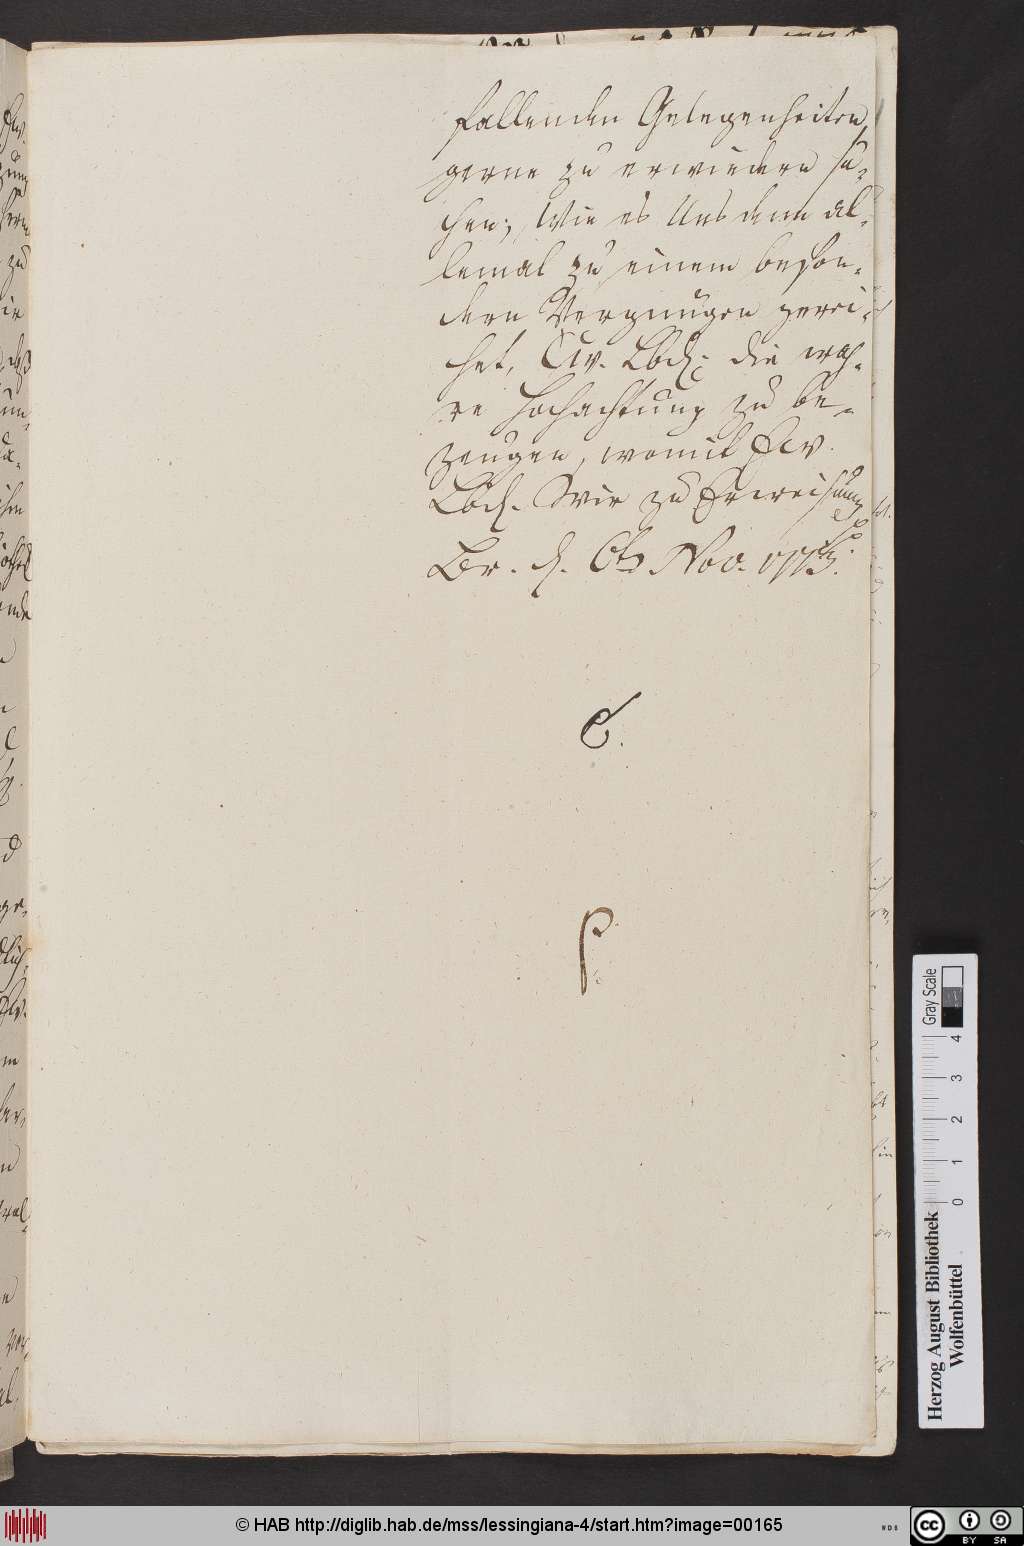 fallenden Gelegenheiten
gerne zu erwiedern su-
chen; Wie es Uns denn al-
lemal zu einem beson-
dern Vergnügen gerei-
chet, Ew. Lbd. die wah-
re Hochachtung zu be-
zeugen, womit Ew.
Lbd. Wir zu Erweisung
Br. d. 6ten Nov. 1773.
C.
P.
Gray Scale
0 1 2 3 4
Herzog August Bibliothek
Wolfenbüttel
© HAB http://diglib.hab.de/mss/lessingiana-4/start.htm?image=00165
WDB
CC BY SA